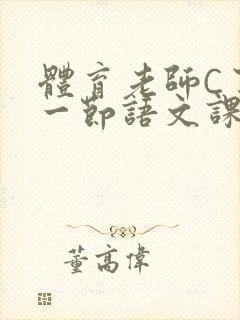 體育老師C
一節語文課
董高偉